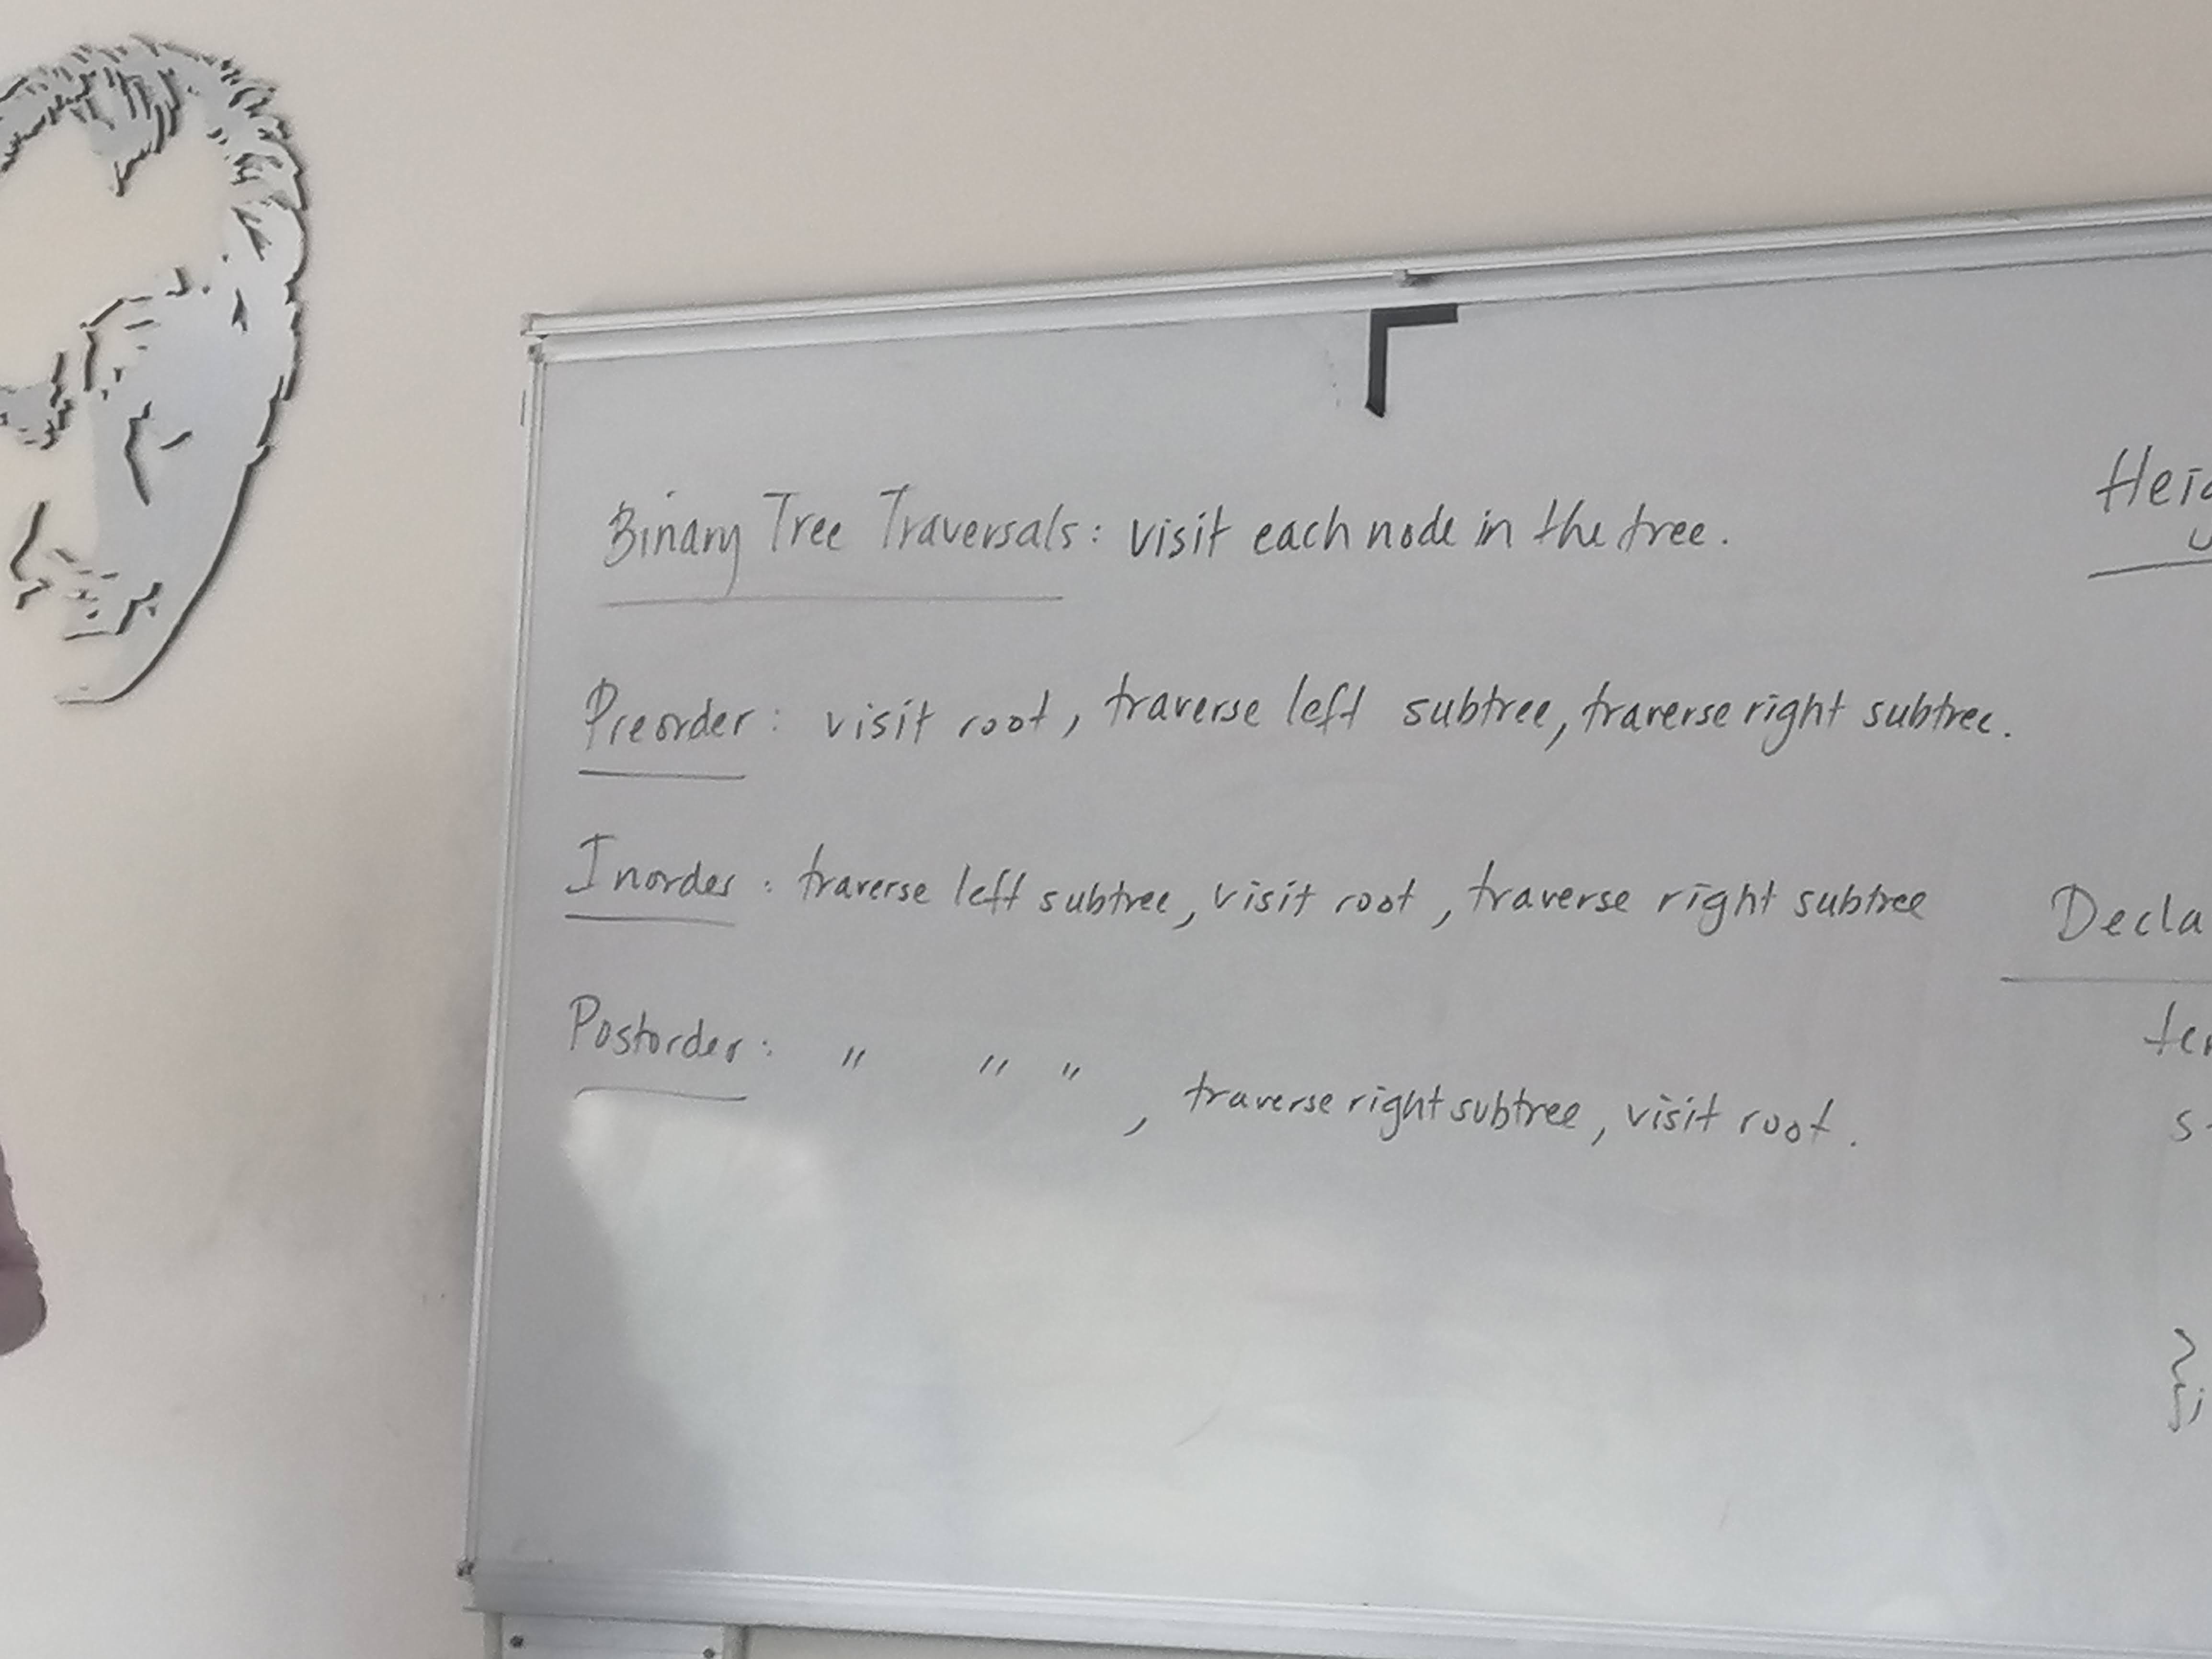 Binary Tree Traversals: visit each node in the tree.
Preorder: visit root, traverse left subtree, traverse right subtree.
Inorder: traverse left subtree, visit root, traverse right subtree
Postorder: " " " , traverse right subtree, visit root.
};